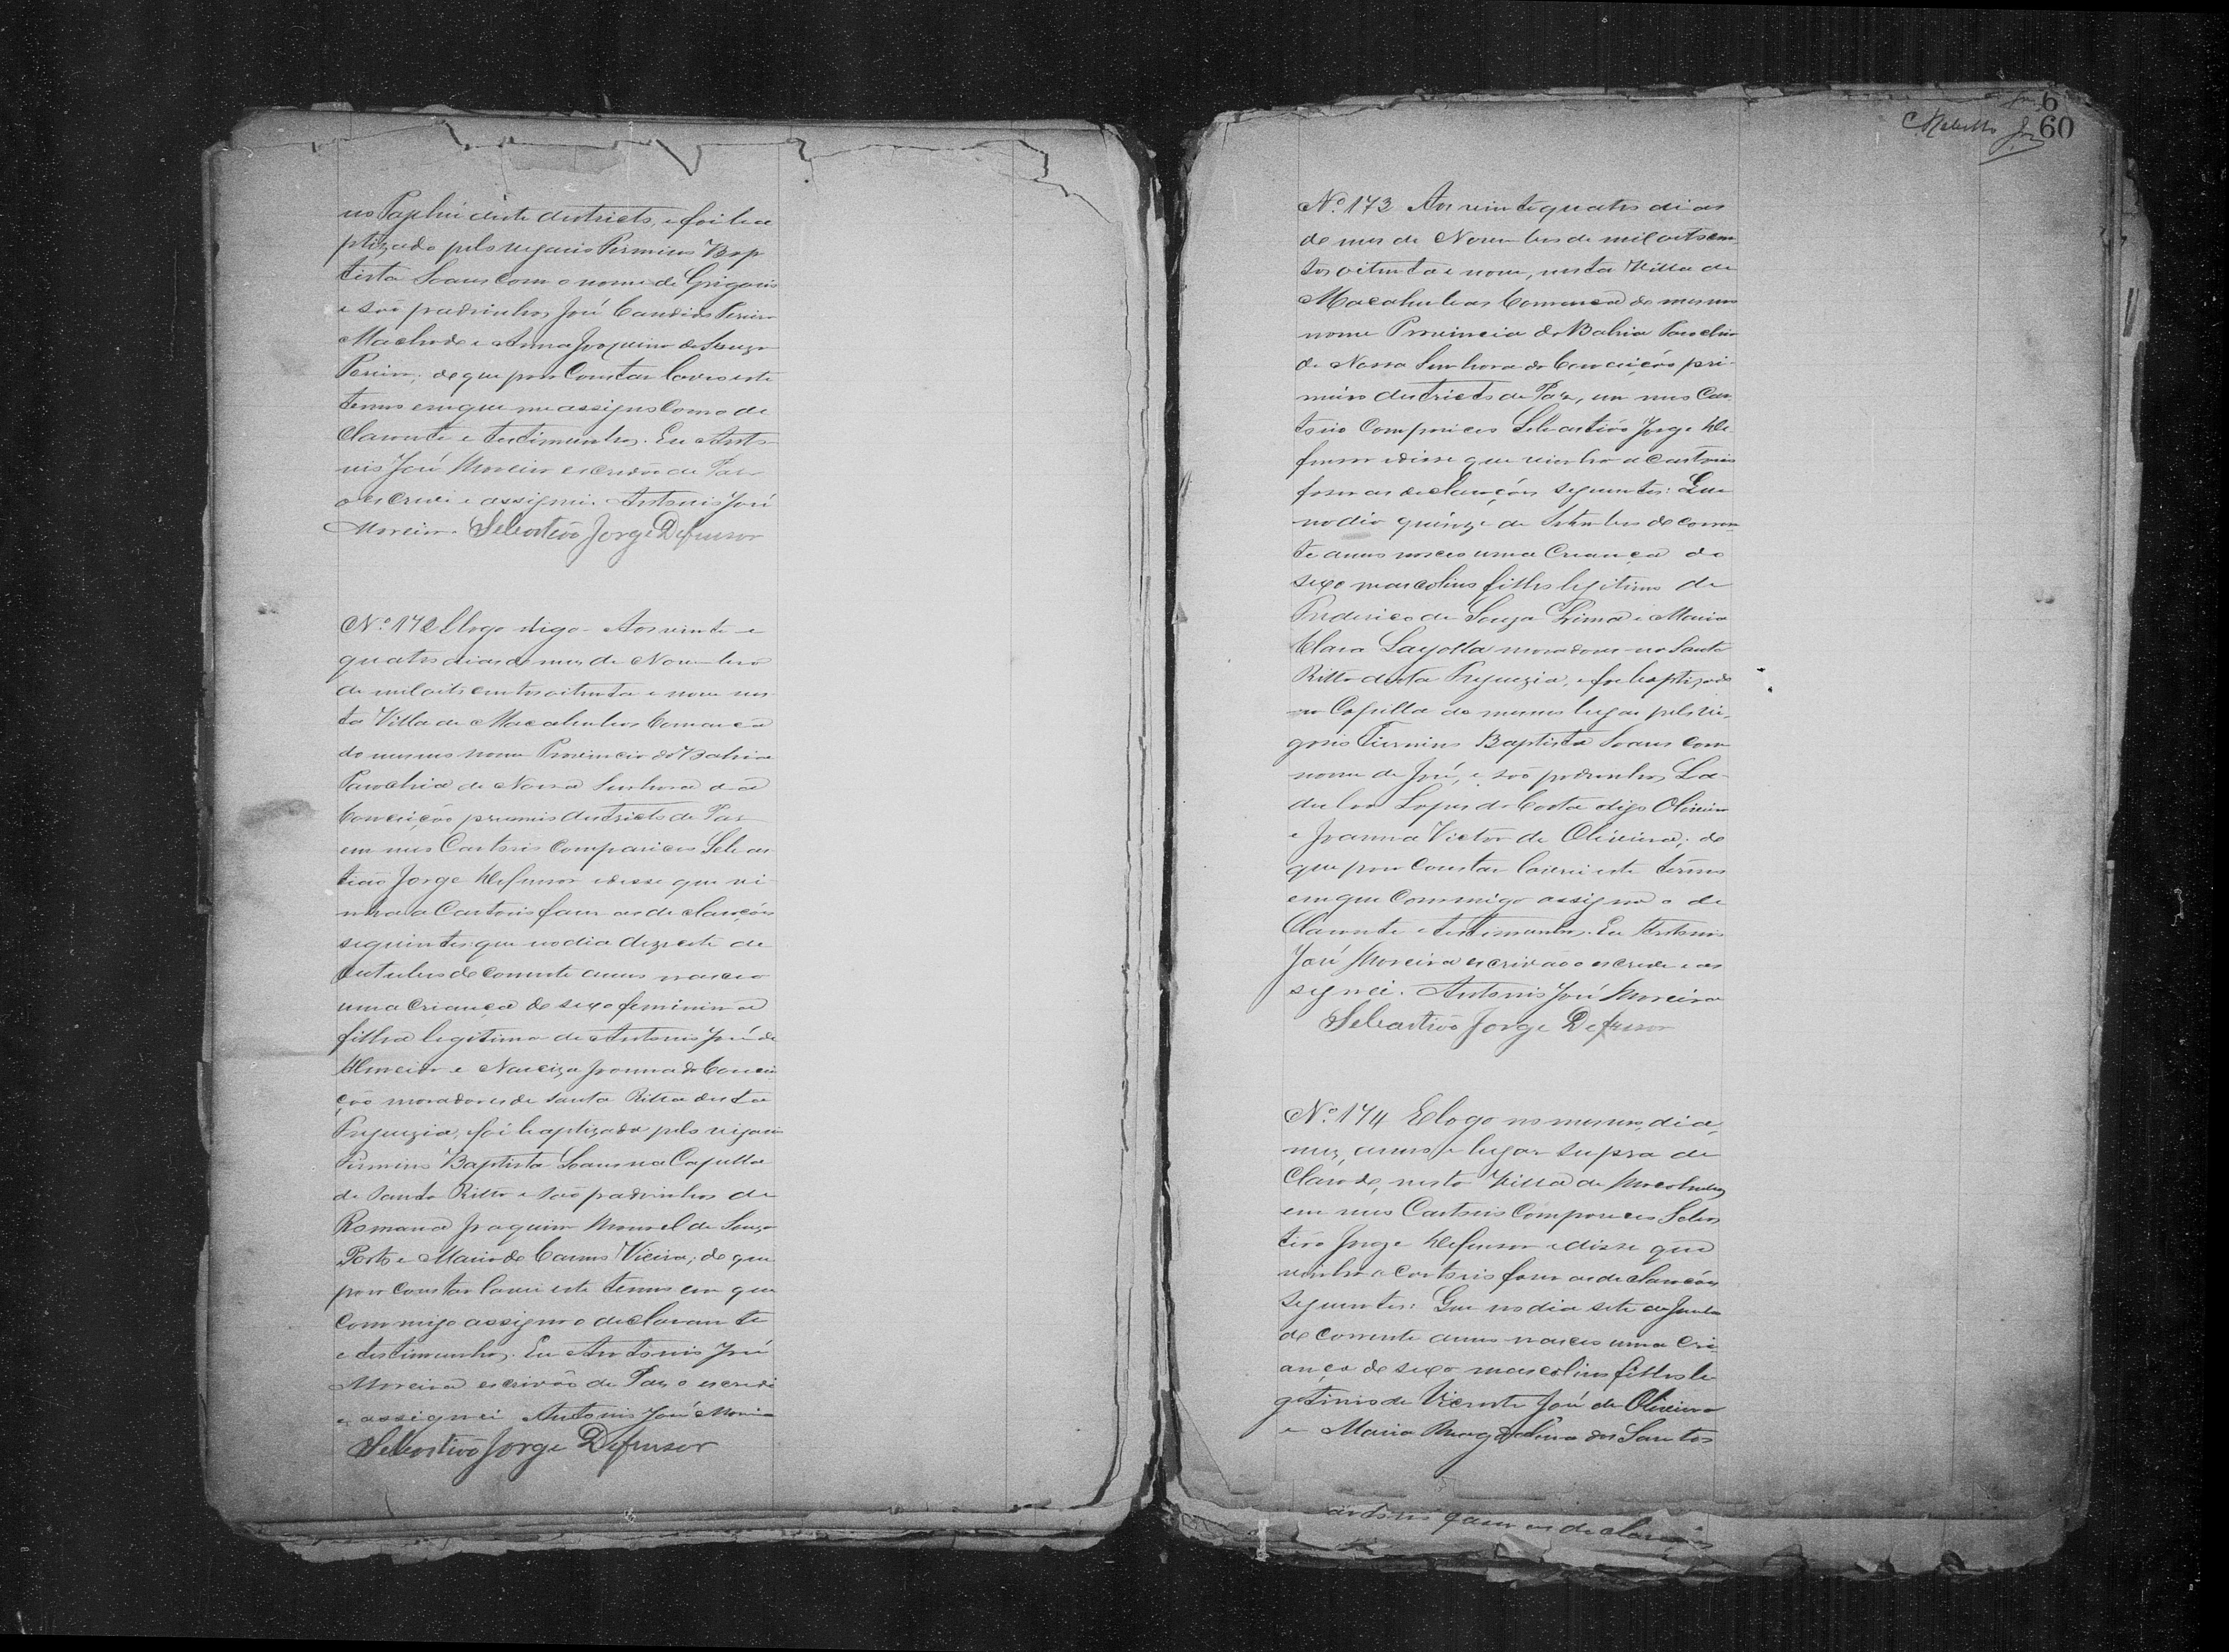 no Taphú deste districto, e foi ba
ptizado pelo vigario Firmino Bap
tista Soares com o nome de Grigorio
e são padrinhos José Candido Pereira
Machado e Anna Joaquina de Souza
Pereira; de que para constar lavro este
termo em que me assigno com o de
clarante e testimunhas. Eu Anto
nio José Moreira escrivão de Paz
o escrevi e assignei. Antonio José
Moreira. Sebastião Jorge Defensor
Nº 172 E logo digo. Aos vinte e
quatro dias do mez de Novembro
de mil oito centos oitenta e nove nes
ta Villa de Macahubas Comarca
do mesmo nome Provincia da Bahia
Parochia de Nossa Senhora da
Conceição primeiro districto de Paz
em meu Cartorio compariceo Sebas
tião Jorge Defensor e disse que vi
nha a Cartorio faser as declarações
seguintes: que no dia dezesete de
Outubro do corrente anno nasceo
uma criança do sexo feminina
filha legitima de Antonio José de
Almeida e Narciza Joanna da Concei
ção moradores de Santa Ritta desta
Freguezia, foi baptizada pelo vigario
Firmino Baptista Soares na Capella
de Santa Ritta e são padrinhos de
Romana Joaquim Manoel de Souza
Porto e Maria do Carmo Vieira; de que
para constar lavrei este termo em que
commigo assigna o declarante
e testimunhas. Eu Antonio José
Moreira escrivão de Paz o escrevi
e assignei Antonio José Moreira
Sebastião Jorge Defensor
6
60
Nº 173 Aos vinte quatro dias
do mez de Novembro de mil oito cen
tos oitenta e nove, nesta Villa de
Macahubas Comarca do mesmo
nome Provincia da Bahia Parochia
de Nossa Senhora da Conceição pri
meiro districto de Paz, em meu Car
torio Compariceo Sebastião Jorge De
fensor e disse que vinha a Cartorio
faser as declarações seguintes: Que
no dia quinze de Setembro do corren
te anno nasceo uma Criança do
sexo mascolino filho legitimo de
Frederico de Souza Lima e Maria
Clara Layolla moradores na Santa
Ritta desta Freguezia, e foi baptizado
na Capella do mesmo lugar pelo vi
gario Firmino Baptista Soares com
nome de José, e são padrinhos La
dislau Lopes da Costa digo Oliveira
e Joanna Victor de Oliveira; do
que para constar lavrei este termo
em que commigo assigna o de
clarante e testimunhas. Eu Antonio
José Moreira escrivão o escrevi e as
signei. Antonio José Moreira
Sebastião Jorge Defensor
Nº 174 E logo no mesmo, dia,
mez, anno e lugar supra de
clarado, nesta Villa de Macahubas
em meu Cartorio Compareceo Sebas
tião Jorge Defensor e disse que
vinha a Cartorio faser as declarações
seguintes: Que no dia sete de Junho
do corrente anno nasceo uma cri
ança do sexo mascolino filho le
gitimo de Vicente José de Oliveira
e Maria Magdalena dos Santos
artorio faser as declarações